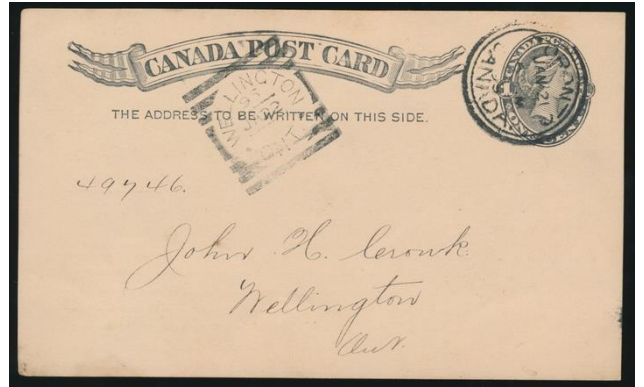 CANADA POST CARD
THE ADDRESS TO BE WRITTEN ON THIS SIDE.
WELLINGTON
ONT
JAN 21
CANADA
49746.
John H. Cronk
Wellington
Ont.